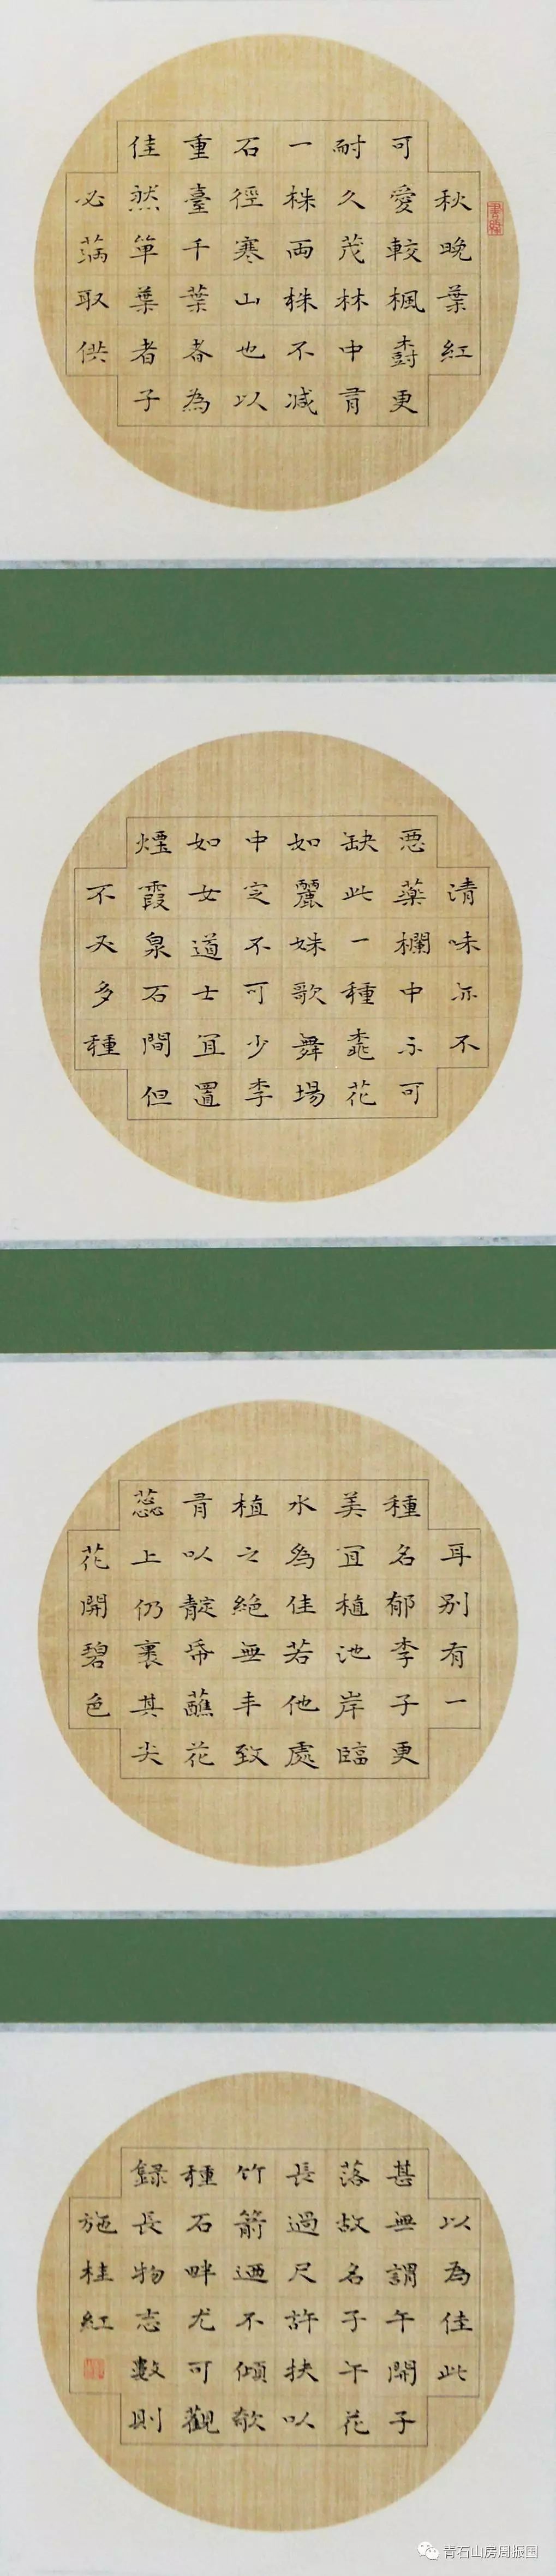 秋晚葉紅
可愛較楓樹更
耐久茂林中有
一株兩株不減
石徑寒山也以
重臺千葉者為
佳然單葉者子
必蒲取供
清味亦不
惡藥欄中不可
缺此一種桃花
如麗姝歌舞場
中定不可少李
如女道士宜置
煙霞泉石間但
不必多種
耳別有一
種名郁李子更
美宜植池岸臨
水為佳若他處
植之絕無丰致
有以靛帛蘸花
蕊上仍裹其尖
花開碧色
以為佳此
甚無謂午開子
落故名子午花
長過尺許扶以
竹箭迺不傾欹
種石畔尤可觀
錄長物志數則
施桂紅
青石山房周振国